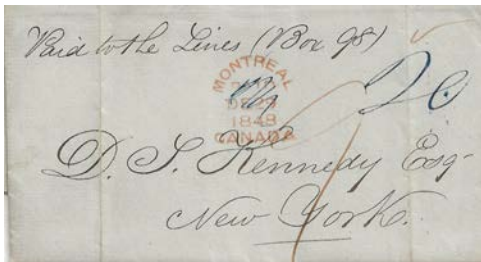 Paid to the Lines (Box 98)
MONTREAL
1848
CANADA
D. S. Kennedy Esq
New York.